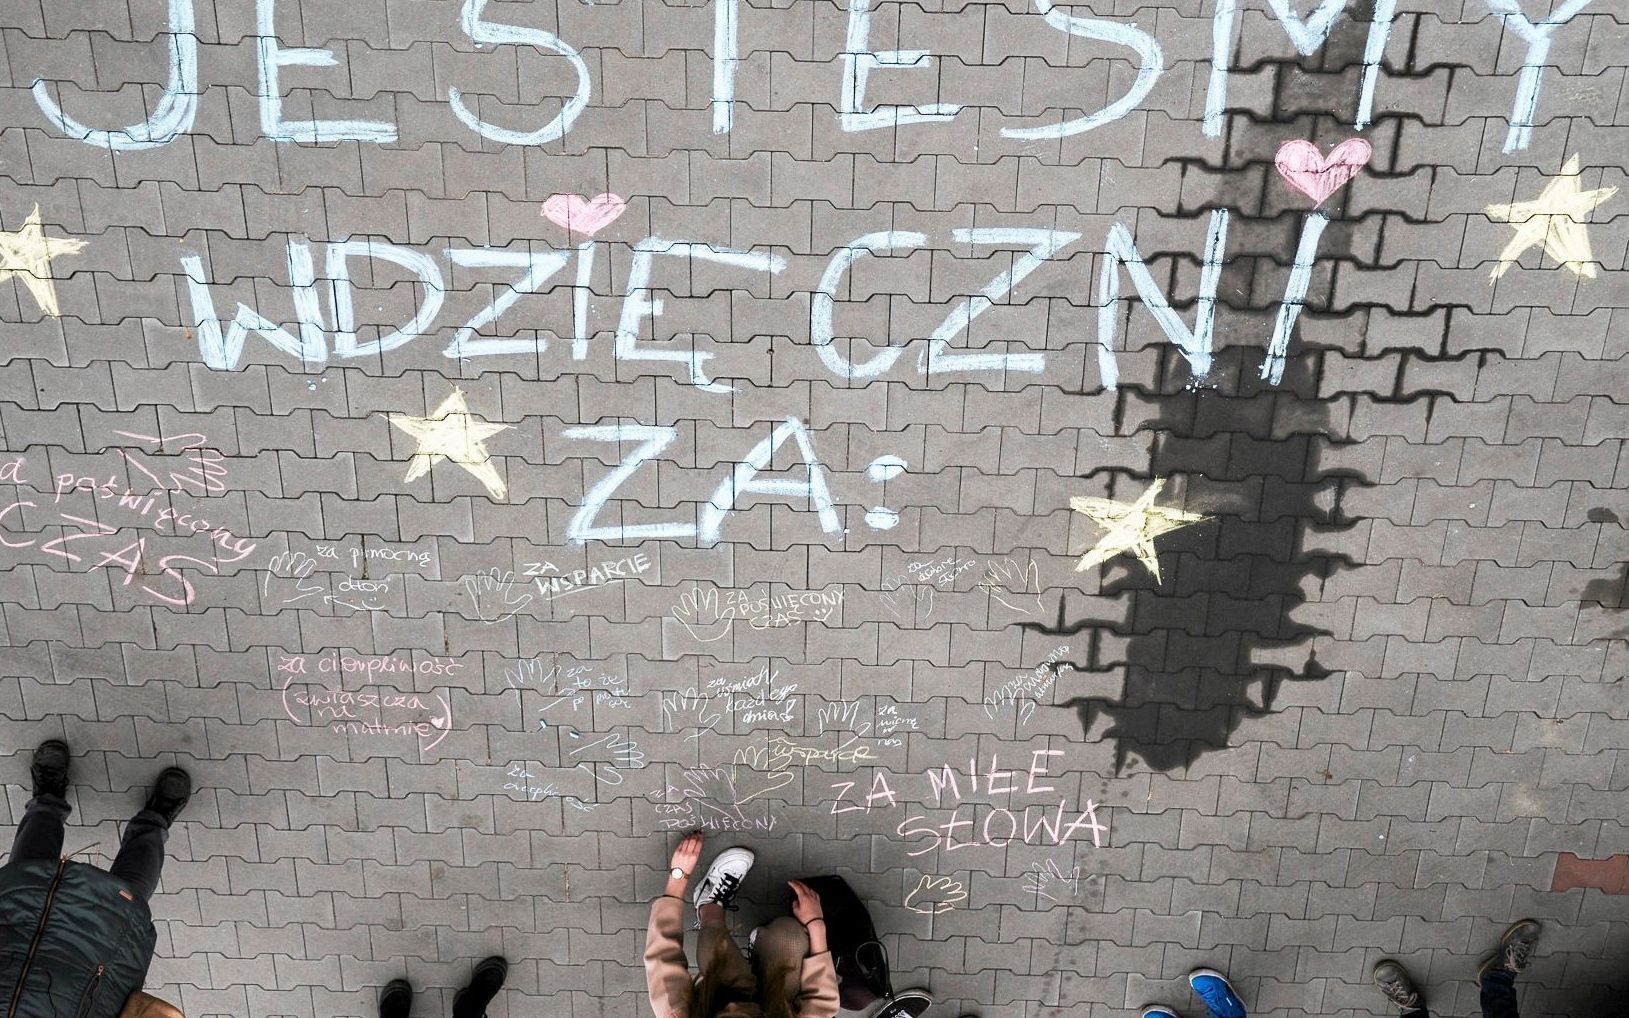 JESTEŚMY
WDZIĘCZNI
ZA:
poświęcony
CZAS
za pomocną
dłoń
ZA
WSPARCIE
ZA
POŚWIĘCONY
CZAS
za
dobre
słowo
za cierpliwość
(zwłaszcza
na
matmie)
za
to że
za
uśmiech
każdego
dnia
za
wiarę
w
nas
wsparcie
za
cierpliwość
ZA
CZAS
POŚWIĘCONY
ZA MIŁE
SŁOWA